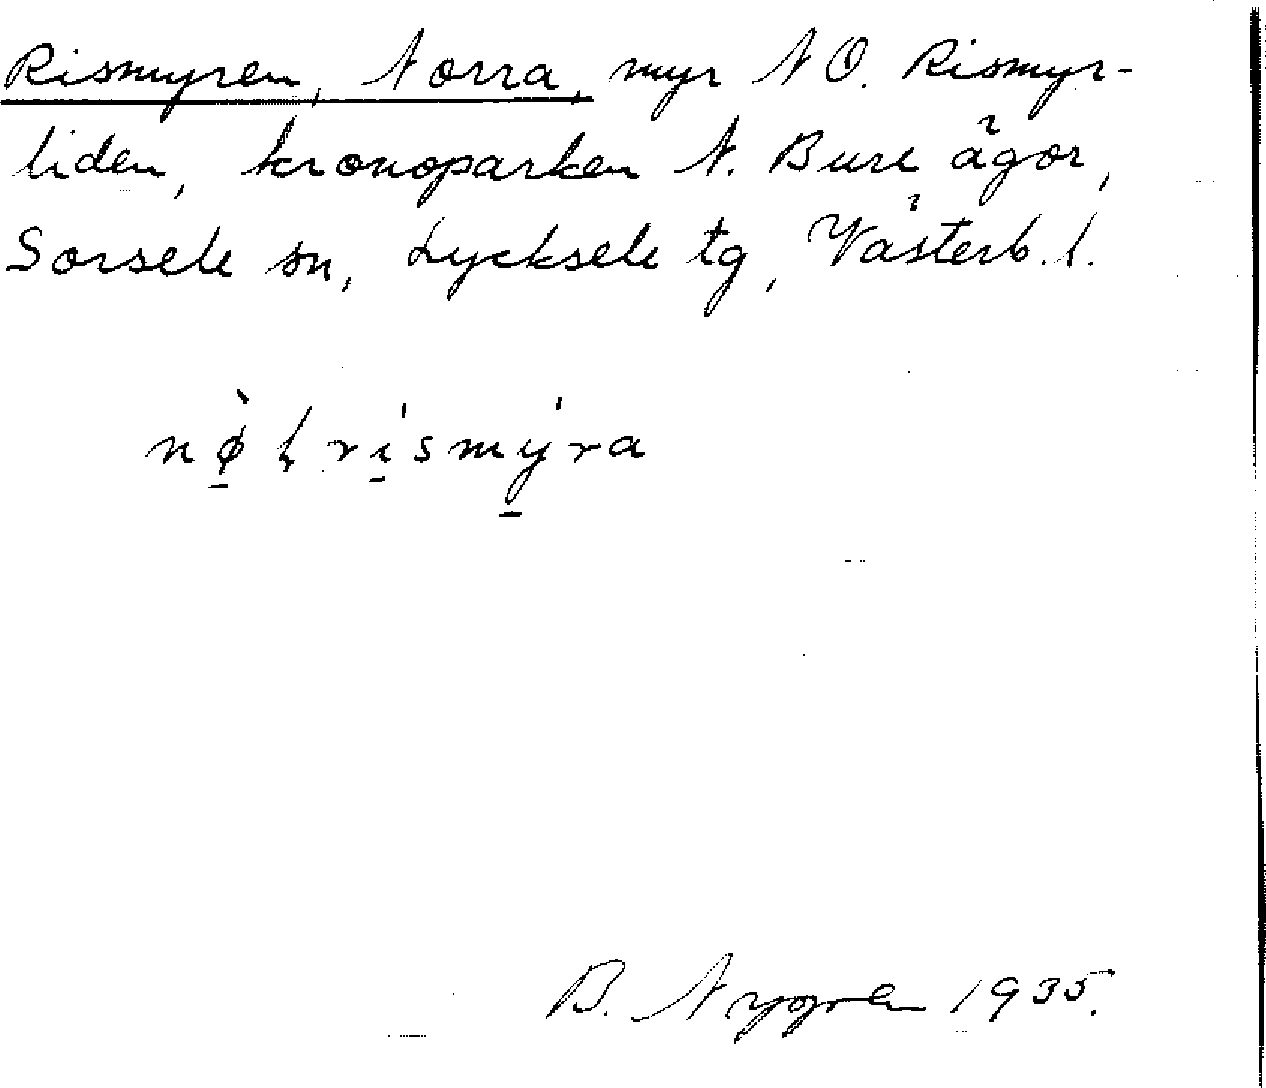 Rismyren, Norra, myr NO. Rismyr-
liden, kronoparken N. Bure ägor,
Sorsele sn, Lycksele tg, Västerb. l.
B. Nygren 1935.